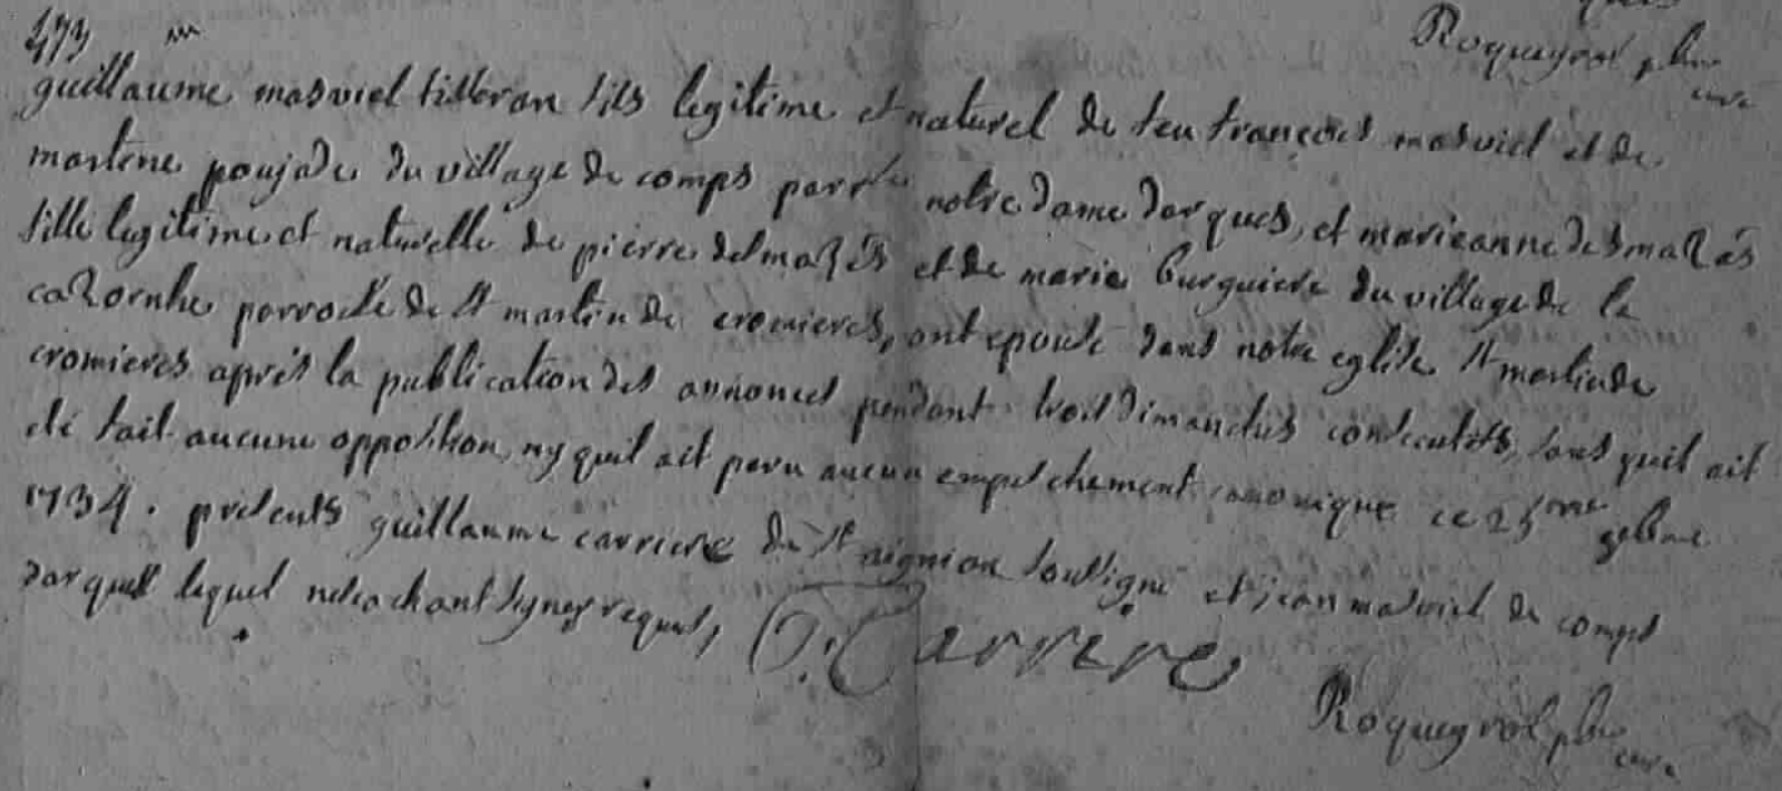 Roqueyrol ptre
curé
173 m
guillaume masviel tisseran fils legitime et naturel de feu françois masviel et de
martene poujade du village de comps parr.se notre dame darques, et marieanne desmazés
fille legitime et naturelle de pierre delmazés et de marie burguiere du village de la
cazornhe parroisse de st martin de cromieres, ont epousé dans notre eglise st martin de
cromieres après la publication des annonces pendant trois dimanches consecutifs, sans quil ait
été fait aucune opposition, ny quil ait paru aucun empeschement canonique ce 25eme
1734. presents guillaume carriere de st aignian soussigné et jean masviel de comps
darques lequel nesachant signer requis,
Carrere
Roqueyrol ptre
curé